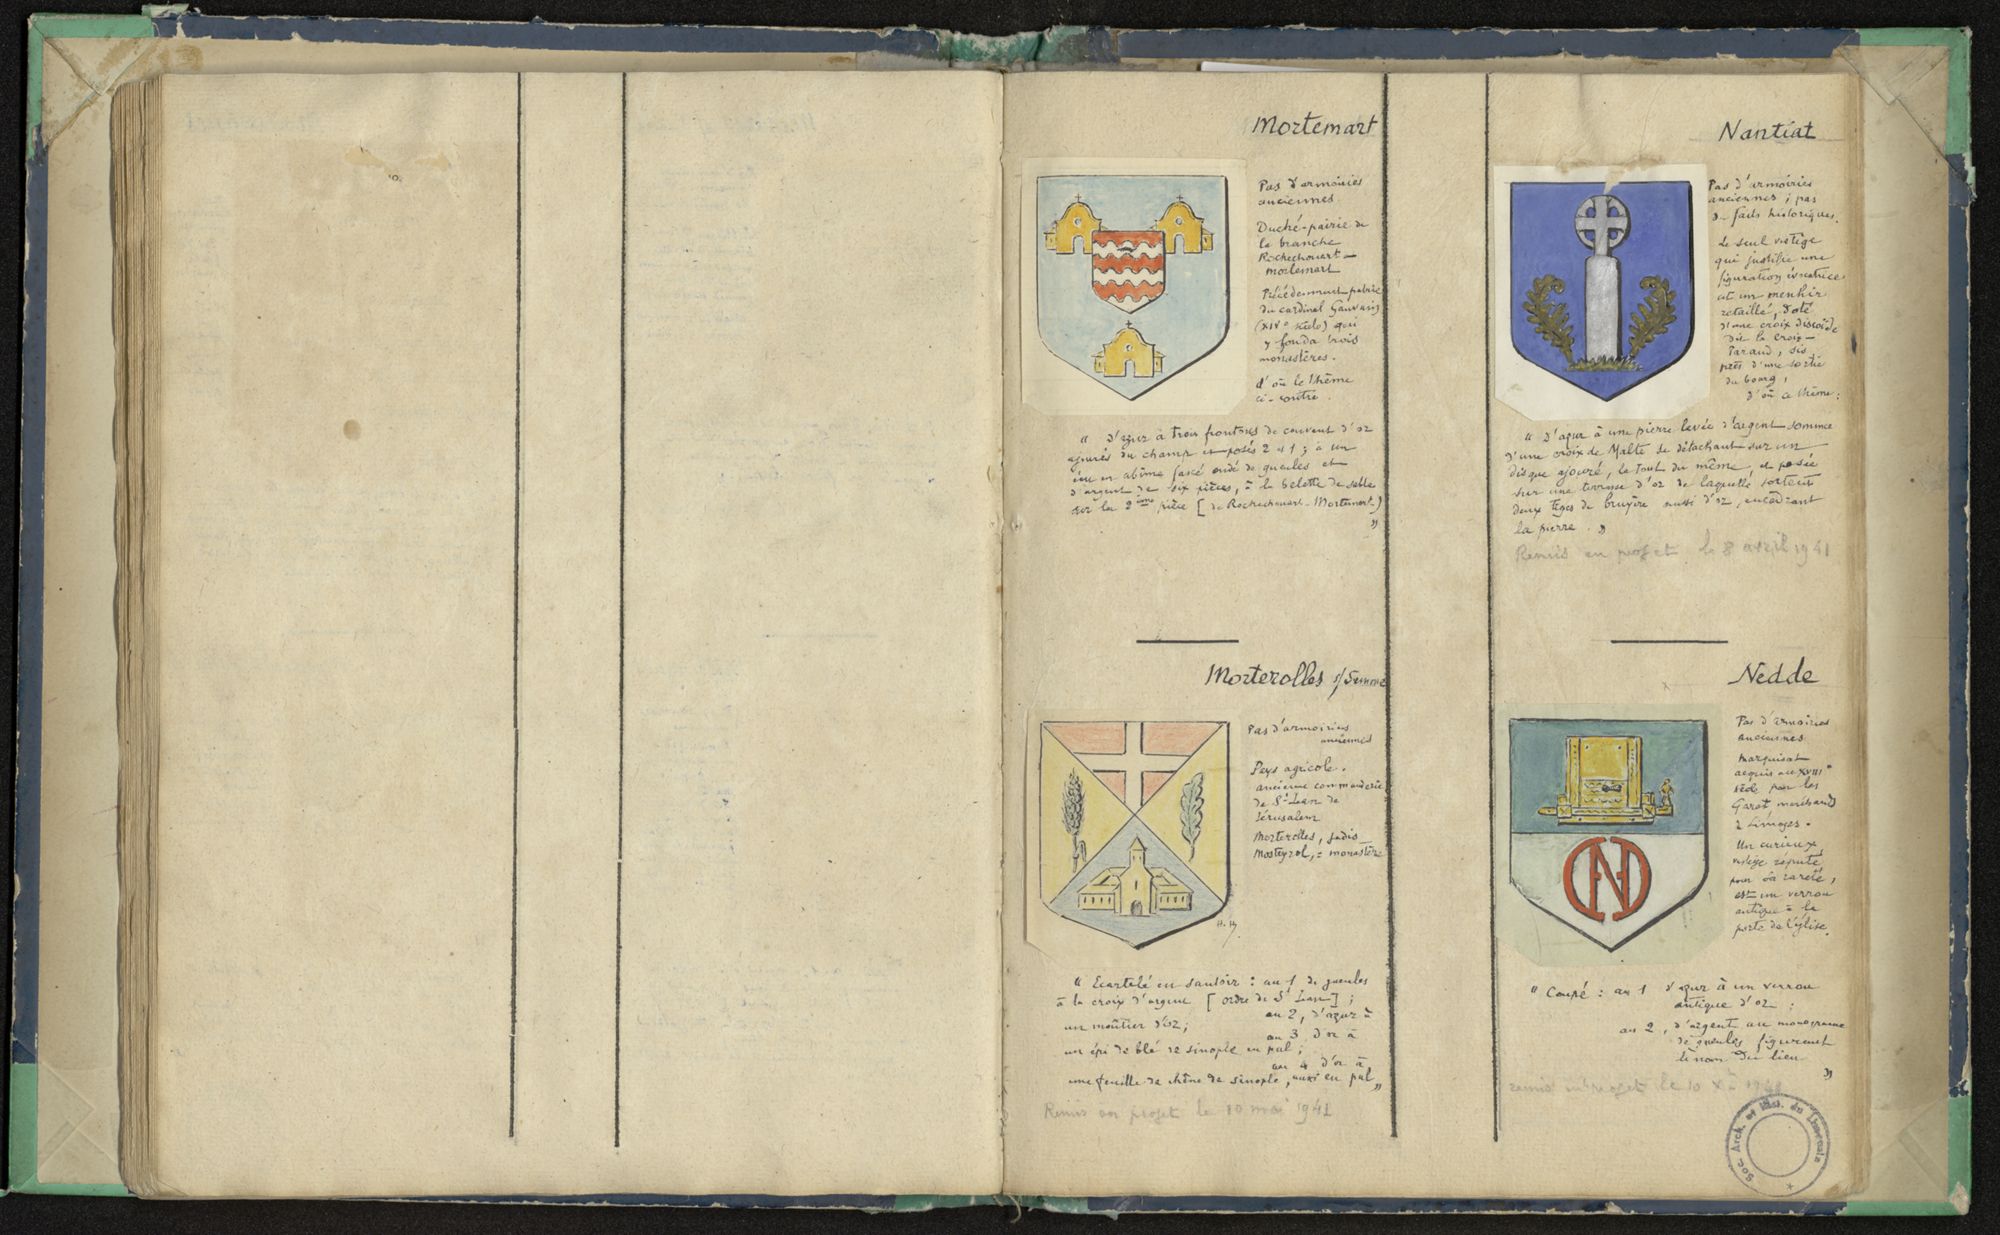 Mortemart
Pas d'armoiries
anciennes.
Duché-pairie de
la branche
Rochechouart-
Mortemart
Précédemment patrie
du cardinal Gauvain
(XIVe siècle) qui
y fonda trois
monastères.
d'où le thème
ci-contre.
" D'azur à trois frontons de couvent d'or
ajourés du champ et posés 2 et 1 ; à un
écu en abîme fascé ondé de gueules et
d'argent de six pièces, à la belette de sable
sur la 2ème pièce [de Rochechouart-Mortemart]
"
Morterolles s/Semme
Pas d'armoiries
anciennes
Pays agricole.
ancienne commanderie
de St Jean de
Jérusalem
Morterolles, jadis
Mosteyrol, = monastère
H. Hy.
" Ecartelé en sautoir : au 1 de gueules
à la croix d'argent [ordre de St Jean] ;
au 2, d'azur à
un moûtier d'or ;
au 3 d'or à
un épi de blé de sinople en pal ;
au 4 d'or à
une feuille de chêne de sinople, aussi en pal "
Remis en projet le 10 mai 1941
Nantiat
Pas d'armoiries
anciennes ; pas
de faits historiques.
Le seul vestige
qui justifie une
figuration évocatrice
est un menhir
retaillé, doté
d'une croix discoïde
dit la croix-
Paraud, sis
près d'une sortie
du bourg,
d'où ce thème :
" D'azur à une pierre levée d'argent sommée
d'une croix de Malte se détachant sur un
disque ajouré, le tout du même, et posée
sur une terrasse d'or de laquelle sortent
deux tiges de bruyère aussi d'or, encadrant
la pierre. "
Remis en projet le 8 avril 1941
Nedde
Pas d'armoiries
anciennes
Marquisat
acquis au XVIIIe
siècle par les
Garat marchands
à Limoges.
Un curieux
vestige réputé
pour sa rareté,
est un verrou
antique à la
porte de l'église.
" Coupé : au 1 d'azur à un verrou
antique d'or :
au 2, d'argent au monogramme
de gueules figurant
le nom du lieu
"
remis en projet le 10 Xbre
Soc. Arch. et Hist. du Limousin